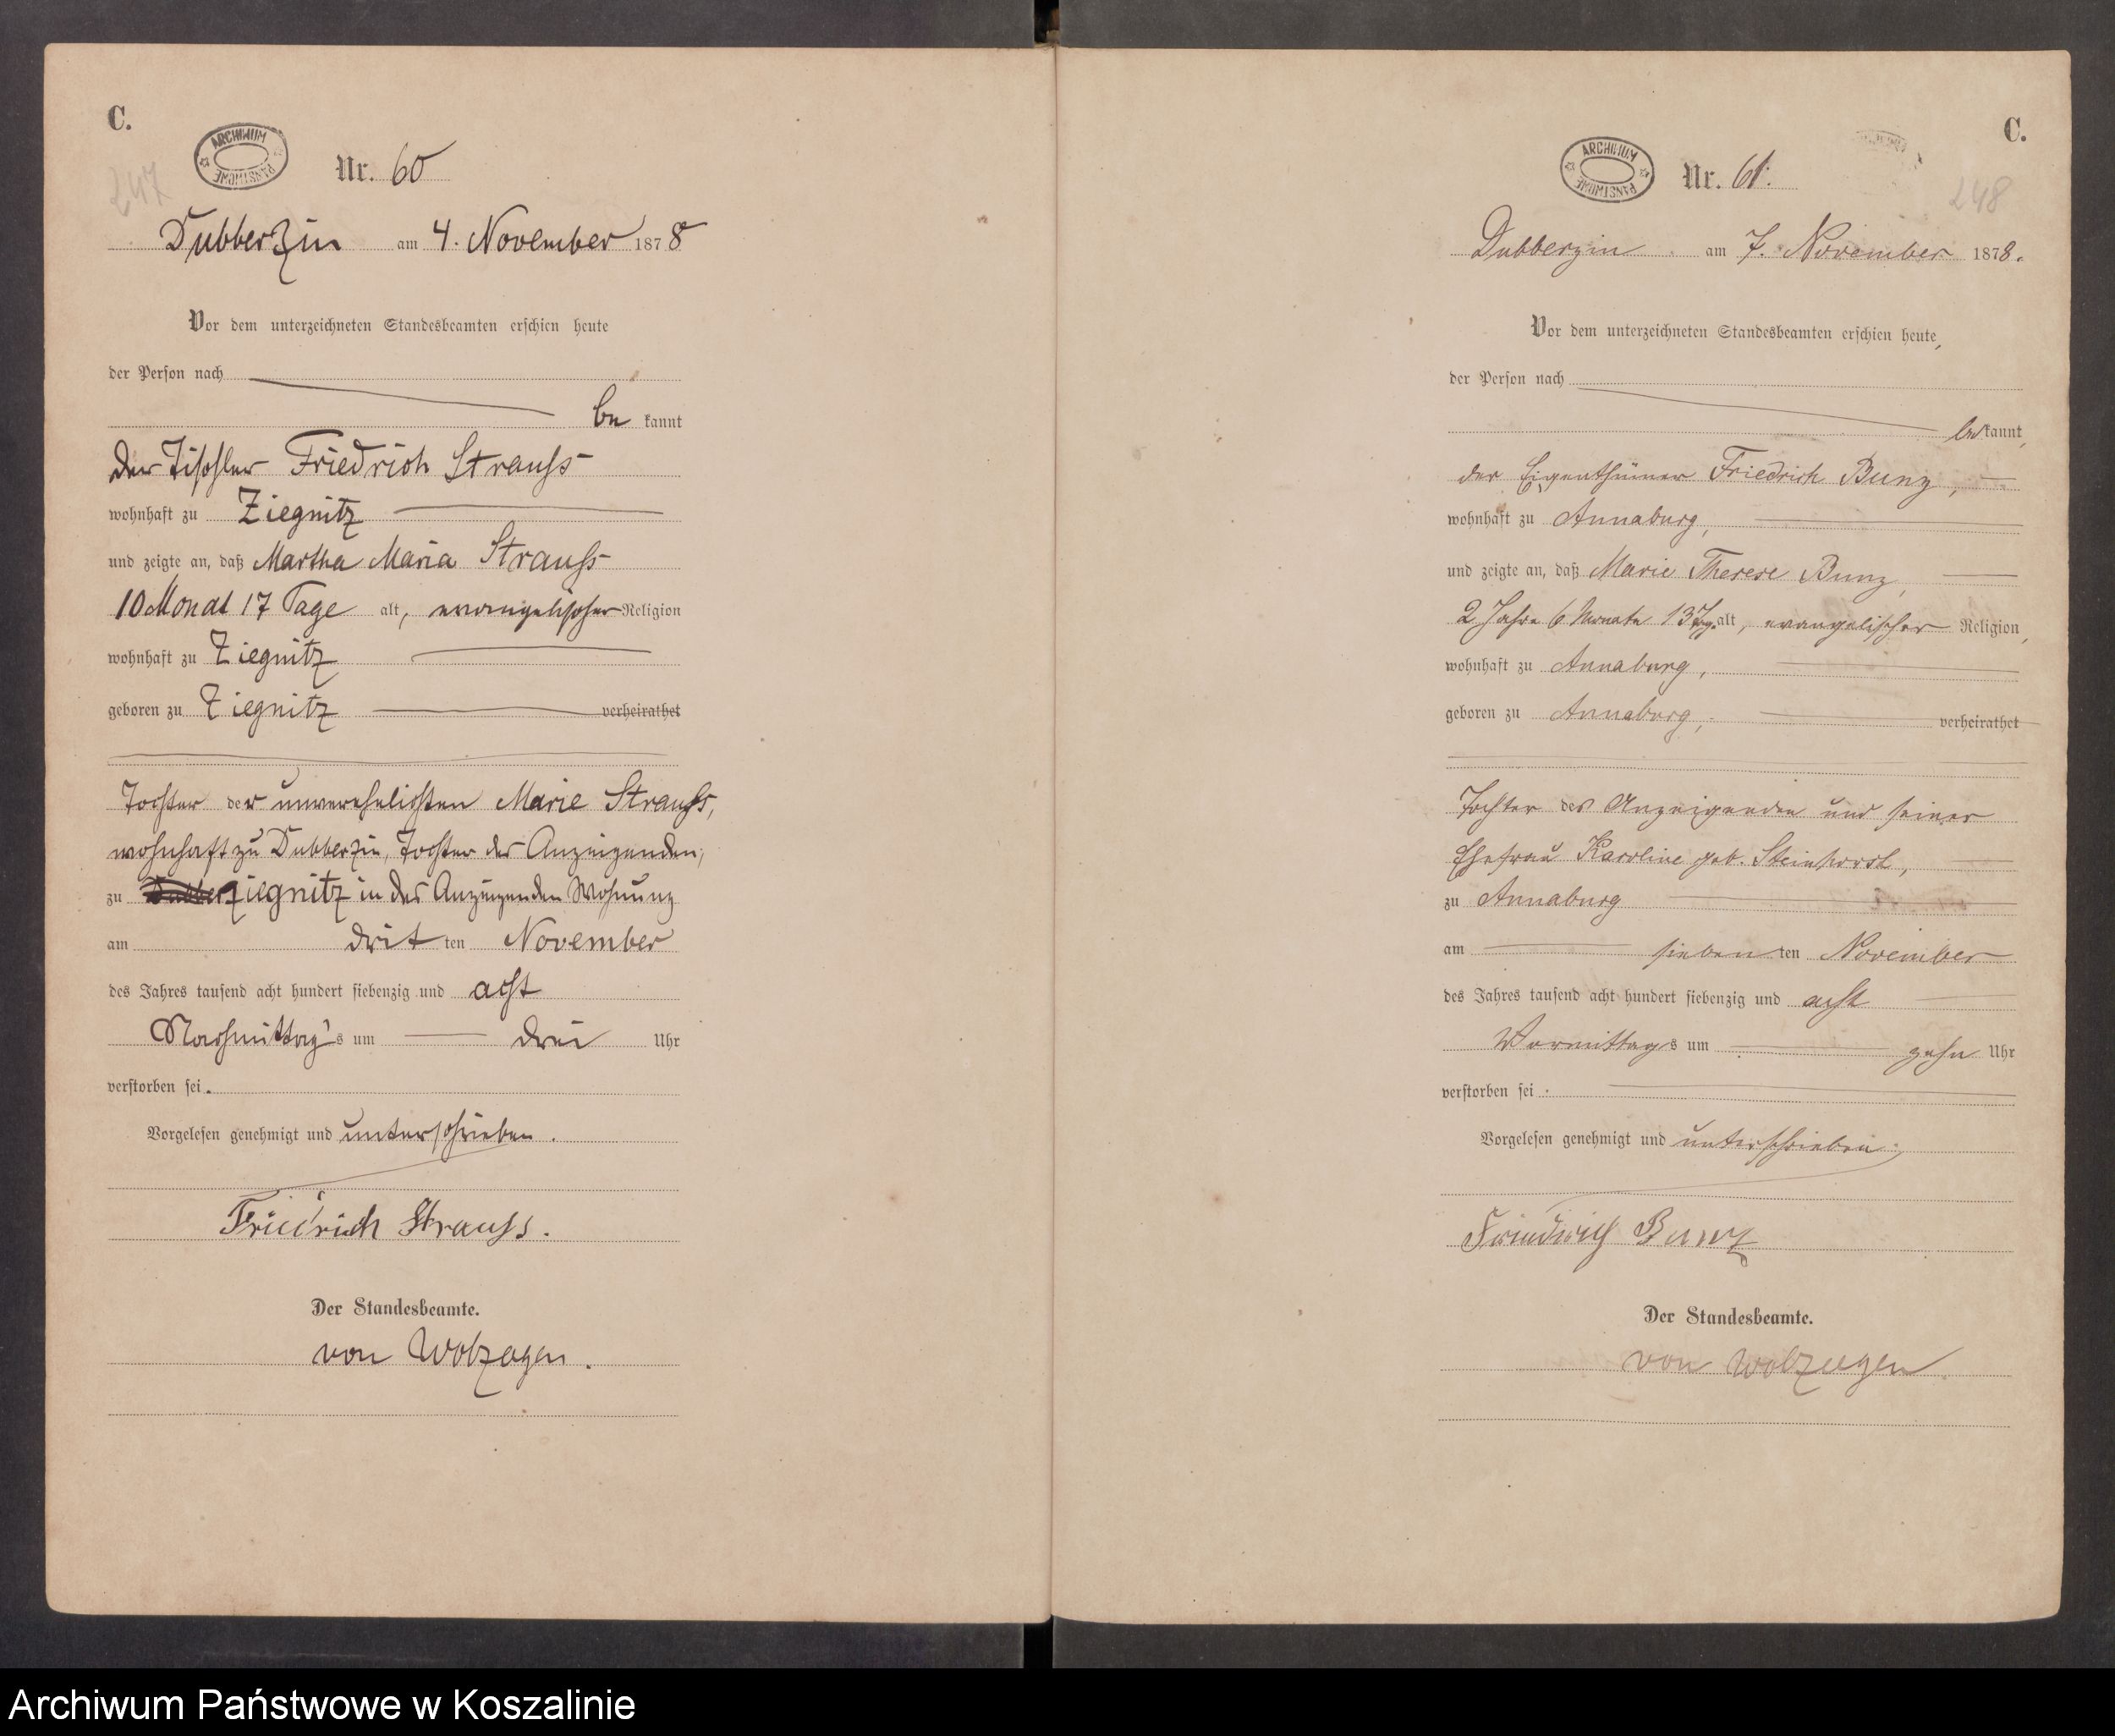 C.
ARCHIWUM PAŃSTWOWE
247
Nr. 60
Dubberzin am 4. November 1878
Vor dem unterzeichneten Standesbeamten erschien heute
der Person nach
be kannt
der Tischler Friedrich Strauss
wohnhaft zu Ziegnitz
und zeigte an, daß Martha Maria Strauss
10 Monat 17 Tage alt, evangelischer Religion
wohnhaft zu Ziegnitz
geboren zu Ziegnitz verheirathet
Tochter der unverehelichten Marie Strauss,
wohnhaft zu Dubberzin, Tochter des Anzeigenden,
zu Ziegnitz in des Anzeigenden Wohnung
am dritten November
des Jahres tausend acht hundert siebenzig und acht
Nachmittags um drei Uhr
verstorben sei.
Vorgelesen genehmigt und unterschrieben.
Friedrich Strauss.
Der Standesbeamte.
von Wolzogen.
C.
ARCHIWUM PAŃSTWOWE
248
Nr. 61.
Dubberzin am 7. November 1878.
Vor dem unterzeichneten Standesbeamten erschien heute,
der Person nach
bekannt,
der Eigenthümer Friedrich Bunz,
wohnhaft zu Annaburg,
und zeigte an, daß Marie Therese Bunz,
2 Jahre 6 Monate 13 Tg. alt, evangelischer Religion,
wohnhaft zu Annaburg,
geboren zu Annaburg, verheirathet
Tochter des Anzeigenden und seiner
Ehefrau Karoline geb. Steinhorst,
zu Annaburg
am siebenten November
des Jahres tausend acht hundert siebenzig und acht
Vormittags um zehn Uhr
verstorben sei.
Vorgelesen genehmigt und unterschrieben.
Friedrich Bunz
Der Standesbeamte.
von Wolzogen
Archiwum Państwowe w Koszalinie